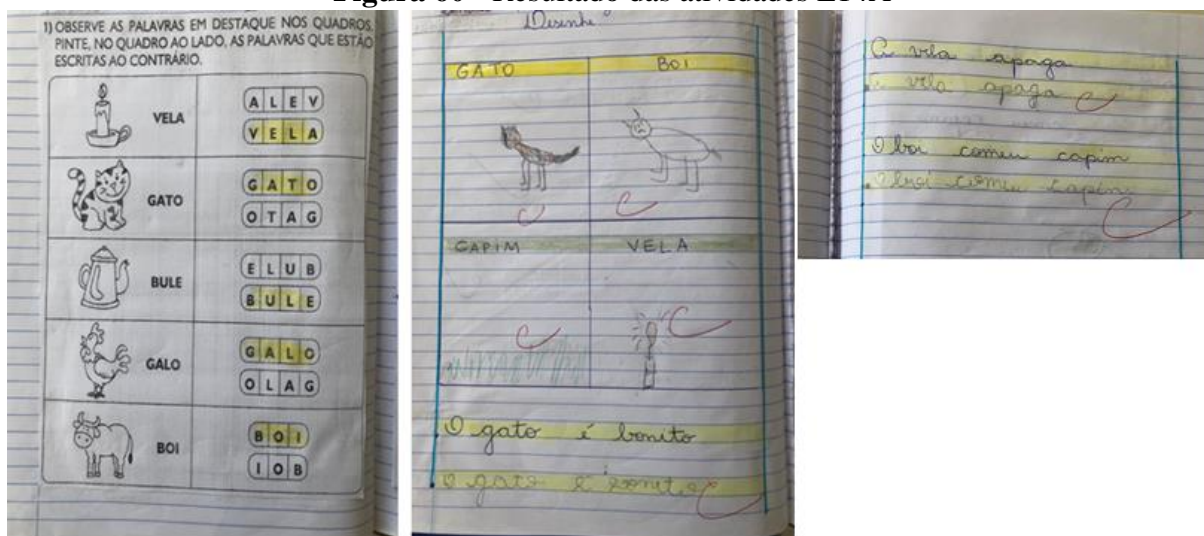 Resultado das atividades
1) OBSERVE AS PALAVRAS EM DESTAQUE NOS QUADROS.
PINTE, NO QUADRO AO LADO, AS PALAVRAS QUE ESTÃO
ESCRITAS AO CONTRÁRIO.
VELA
ALEV
VELA
GATO
GATO
OTAG
BULE
ELUB
BULE
GALO
GALO
OLAG
BOI
BOI
IOB
Desenhe
GATO BOI
CAPIM VELA
O gato é bonito
O gato é bonito
A vela apaga
A vela apaga
O boi comeu capim
O boi comeu capim